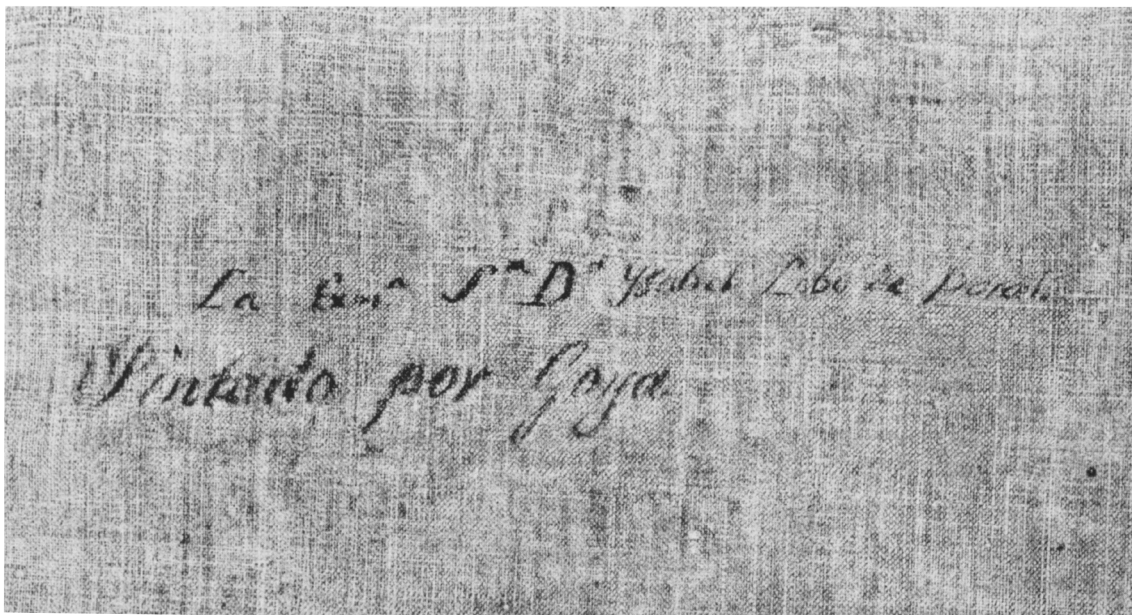 La Exmª Sʳª Dª Ysabel Lobo de Porcel.
Pintado por Goya.